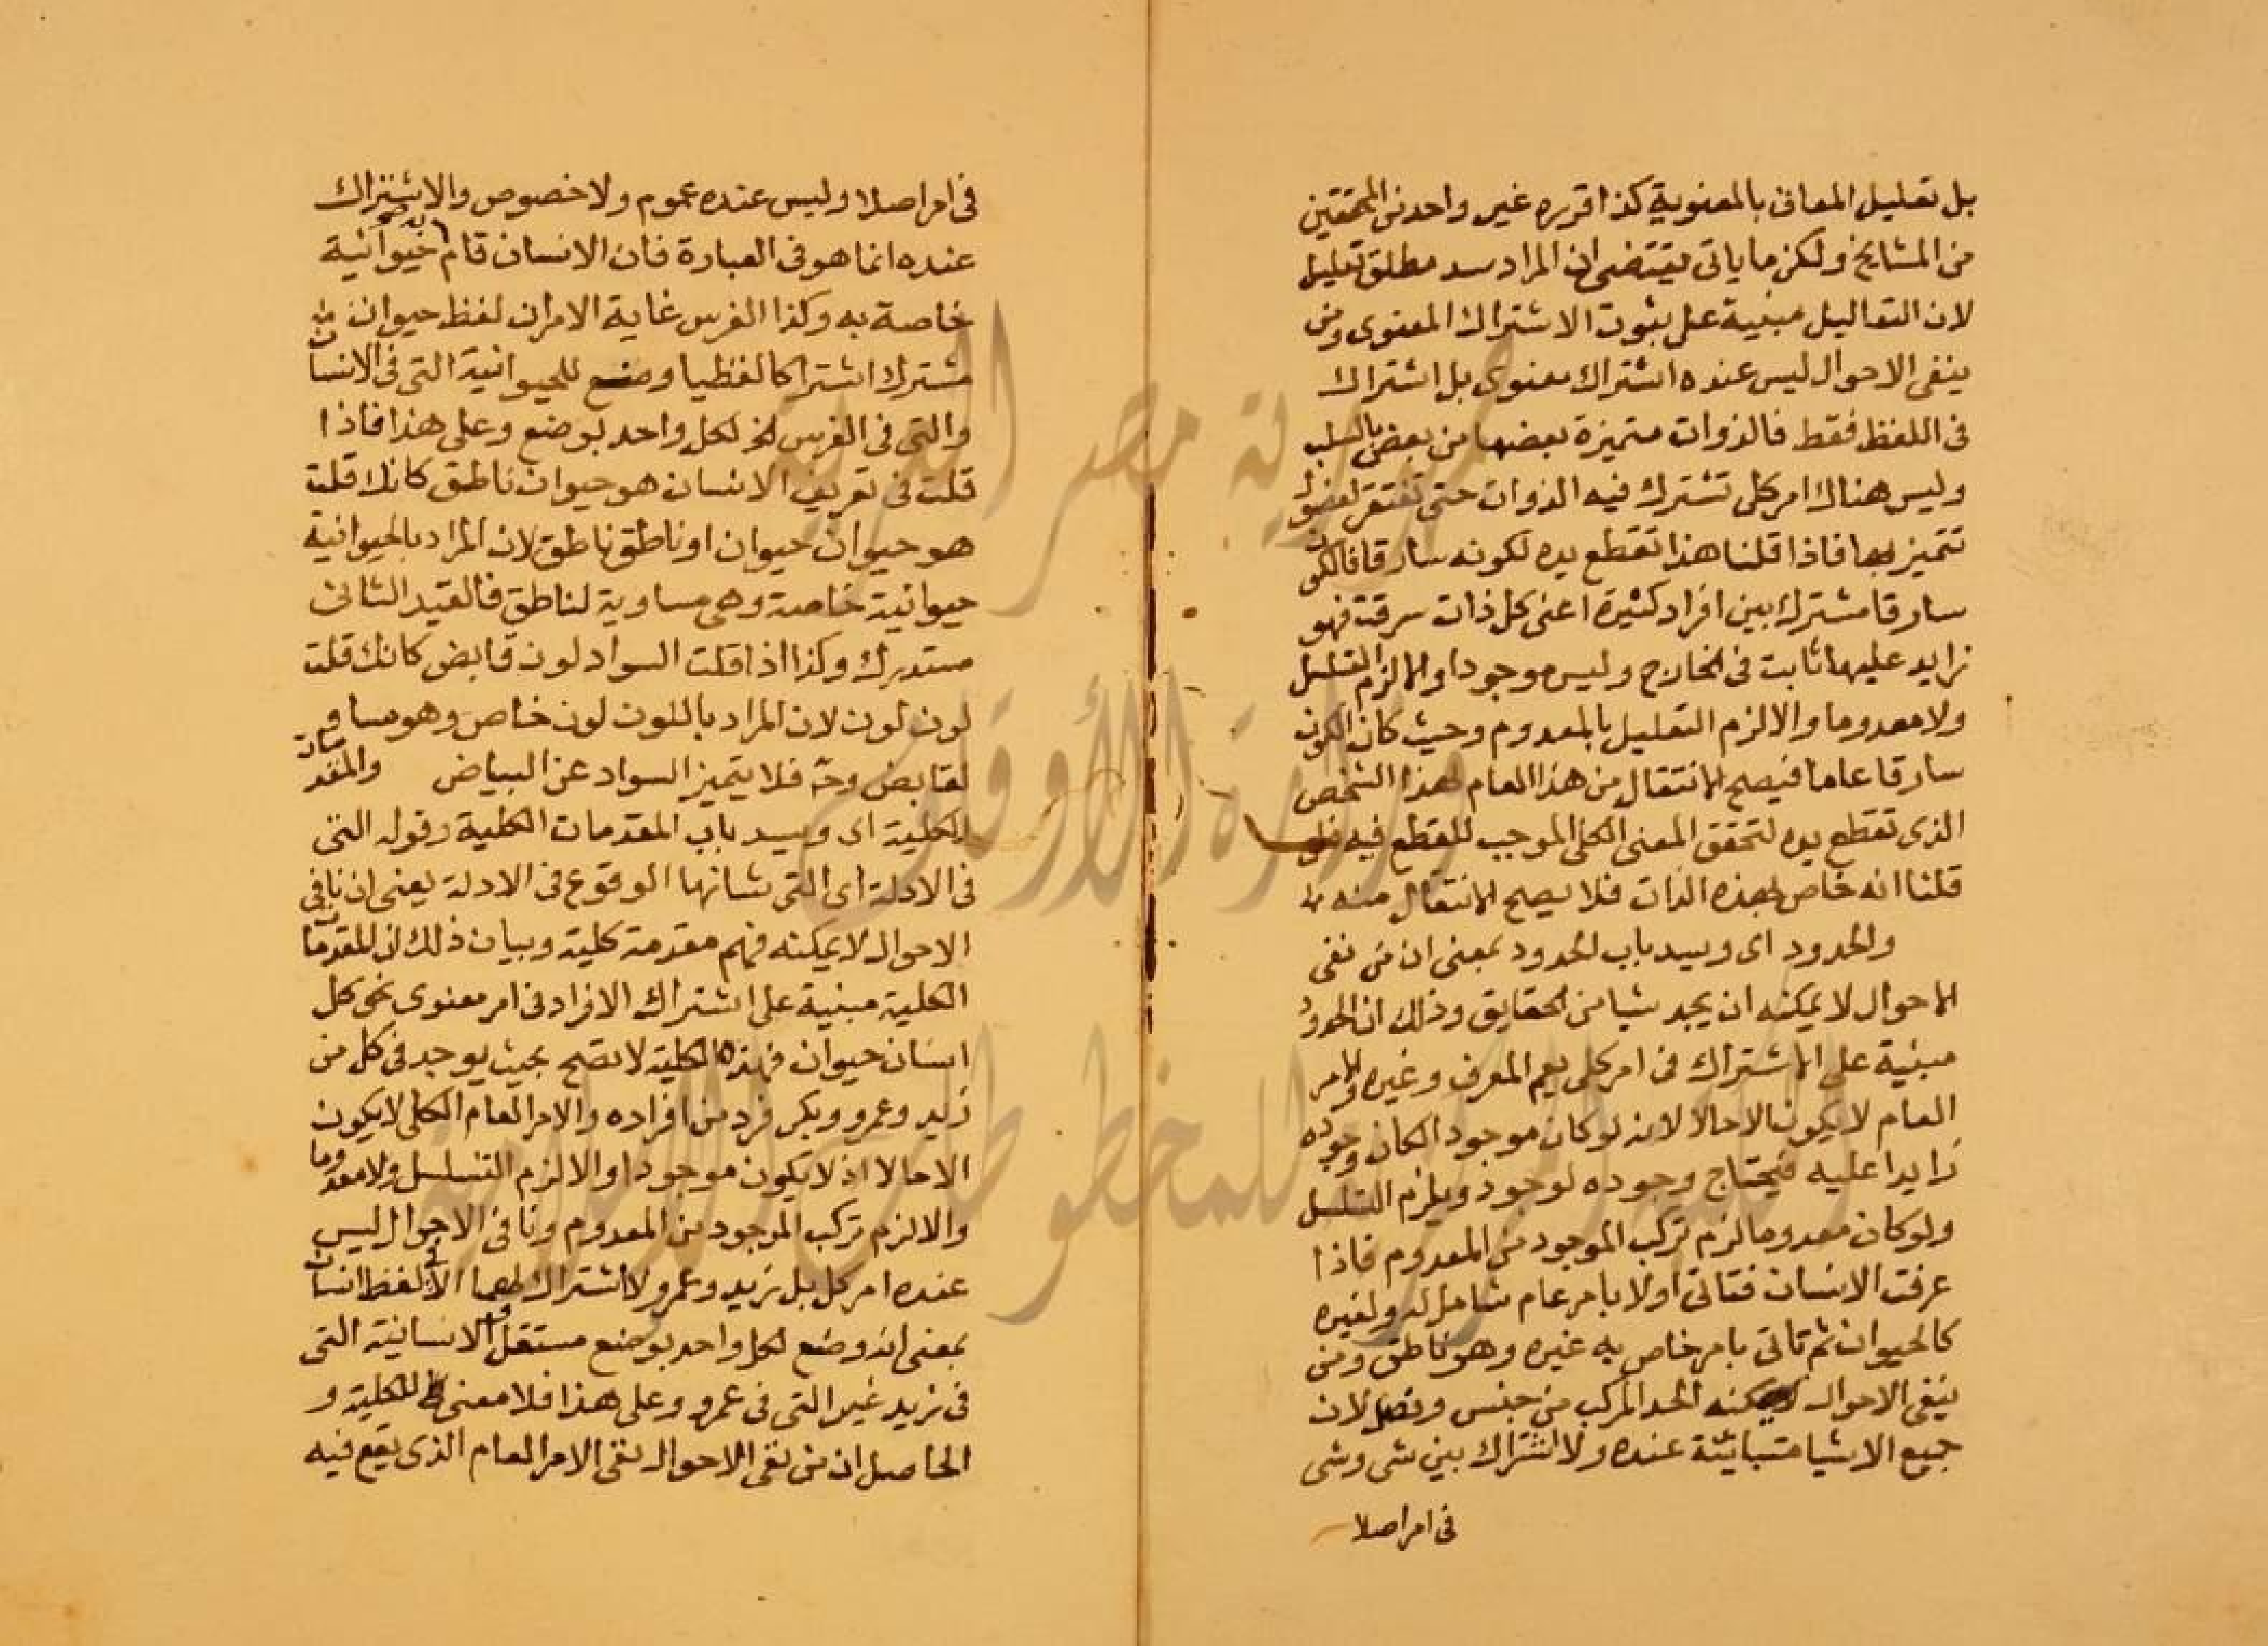 بل تعليل المعانى بالمعنوية كذا قرره غير واحد من المحققين
من المشايخ ولكن ما ياتى يقتضى ان المراد سد مطلق تعليل
لان التعاليل مبنية على ثبوت الاشتراك المعنوى ومن
ينفى الاحوال ليس عنده اشتراك معنوى بل اشتراك
فى اللفظ فقط فالذوات متميزة بعضها من بعض بالسلب
وليس هناك امر كلى تشترك فيه الذوات حتى تفتقر لفصول
تتميز بها فاذا قلنا هذا تقطع يده لكونه سارقا فالكون
سارقا مشترك بين افراد كثيرة اعنى كل ذات سرقت فهو
زايد عليها ثابت فى الخارج وليس موجودا والا لزم التسلسل
ولا معدوما والا لزم التعليل بالمعدوم وحيث كان الكون
سارقا عاما فيصح الانتقال من هذا العام لهذا الشخص
الذى تقطع يده لتحقق المعنى الكلى الموجب للقطع فيه فلو
قلنا انه خاص بهذه الذات فلا يصح الانتقال منه
والحدود اى وسد باب الحدود بمعنى ان من نفى
الاحوال لا يمكنه ان يحد شيا من الحقايق وذلك ان الحدود
مبنية على الاشتراك فى امر كلى يعم المعرف وغيره والامر
العام لا يكون الا حالا لانه لو كان موجودا لكان وجوده
زايدا عليه فيحتاج وجوده لوجود ويلزم التسلسل
ولو كان معدوما لزم تركب الموجود من المعدوم فاذا
عرفت الانسان فتاتى اولا بامر عام شامل له ولغيره
كالحيوان ثم تاتى بامر خاص به غيره وهو ناطق ومن
ينفى الاحوال لا يمكنه الحد المركب من جنس وفصل لان
جميع الاشيا متباينة عنده ولا اشتراك بين شى وشى
فى امر اصلا
فى امر اصلا وليس عنده عموم ولا خصوص والاشتراك
عنده انما هو فى العبارة فان الانسان قام به حيوانية
خاصة به وكذا الفرس غاية الامر ان لفظ حيوان
مشترك اشتراكا لفظيا وضع للحيوانية التى فى الانسان
والتى فى الفرس الخ لكل واحد بوضع وعلى هذا فاذا
قلت فى تعريف الانسان هو حيوان ناطق كانك قلت
هو حيوان حيوان او ناطق ناطق لان المراد بالحيوانية
حيوانية خاصة وهى مساوية لناطق فالقيد الثانى
مستدرك وكذا اذا قلت السواد لون قابض كانك قلت
لون لون لان المراد باللون لون خاص وهو مساو
لقابض وح فلا يتميز السواد عن البياض والمقدمات
الكلية اى وسد باب المقدمات الكلية وقوله التى
فى الادلة اى التى شانها الوقوع فى الادلة يعنى ان نافى
الاحوال لا يمكنه فهم مقدمة كلية وبيان ذلك ان المقدمات
الكلية مبنية على اشتراك الافراد فى امر معنوى نحو كل
انسان حيوان فهذه الكلية لا تصح بحيث يوجد فى كل من
زيد وعمرو وبكر فرد من افراده والامر العام الكلى لا يكون
الا حالا اذ لا يكون موجودا والا لزم التسلسل ولا معدوما
والا لزم تركب الموجود من المعدوم ونافى الاحوال ليس
عنده امر كلى بل زيد وعمرو لا اشتراك لهما الا فى لفظ انسان
بمعنى انه وضع لكل واحد بوضع مستقل والانسانية التى
فى زيد غير التى فى عمرو وعلى هذا فلا معنى للكلية و
الحاصل ان من نفى الاحوال نفى الامر العام الذى يقع فيه